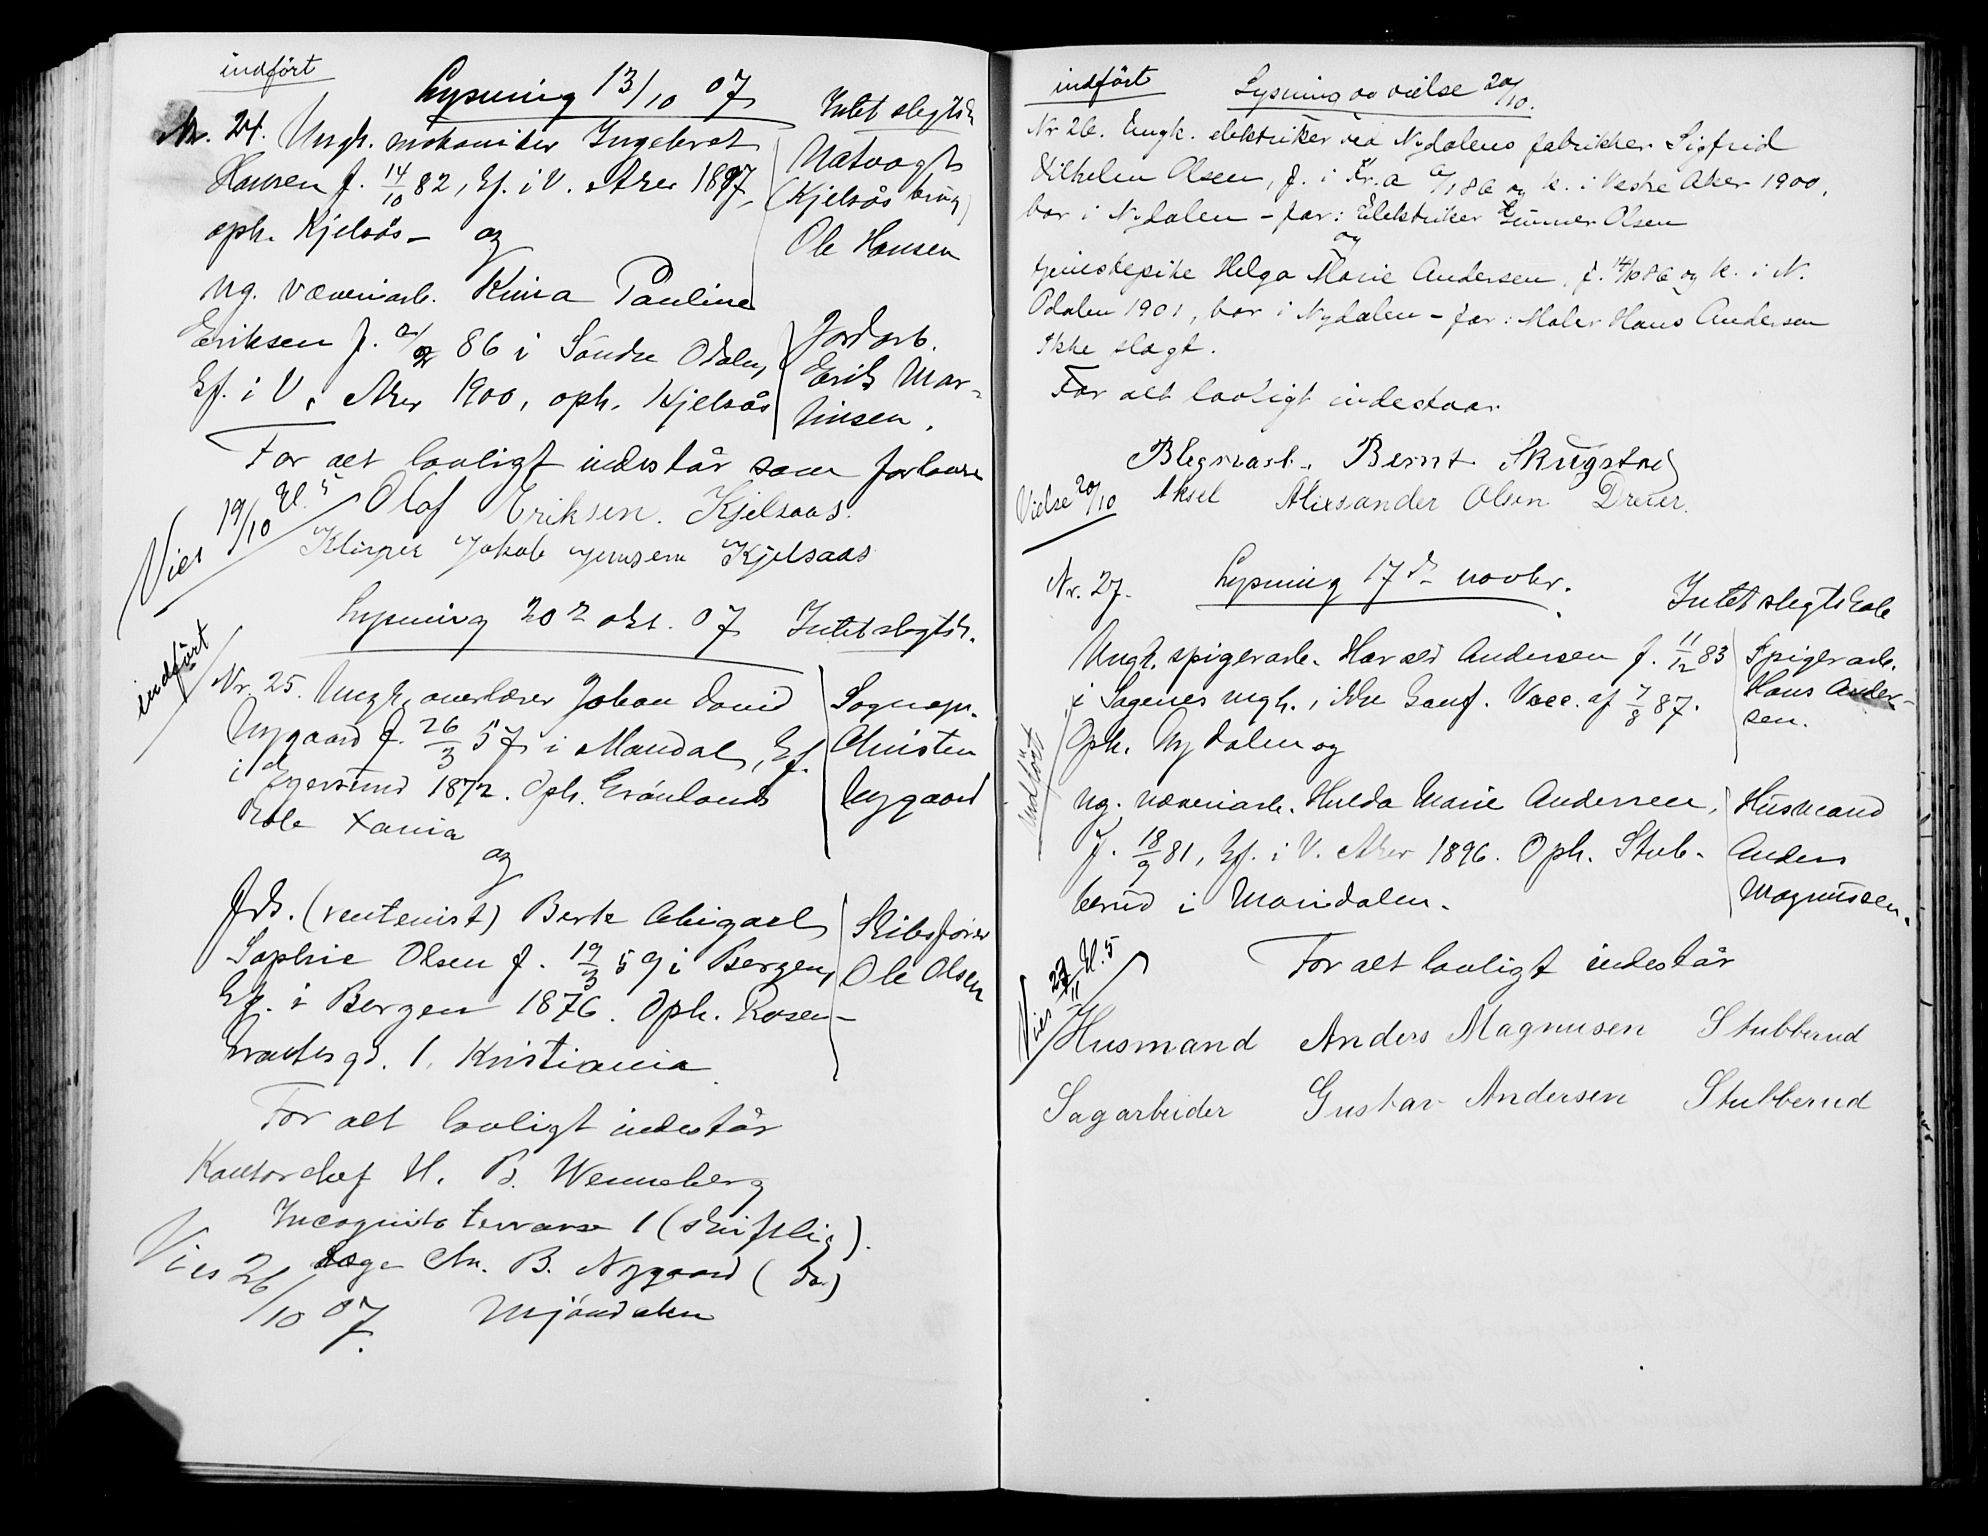 indført
Lysning 13/10 07
Intet slegtsk.
Nr. 24. Ungk. mekaniker Ingebret
Hansen f. 14/10 82, kf. i V. Aker 1897,
oph. Kjelsås – og
Natvagt
(Kjelsås brug)
Ole Hansen
ug. væveriarb. Kima Pauline
Eriksen f. 86 i Søndre Odalen,
kf. i V. Aker 1900, oph. Kjelsås
Jordarb.
Erik Mar-
tinsen.
For alt lovligt indestår som forlovere
Olaf Eriksen. Kjelsaas.
Jakob Jensen Kjelsaas
Vies 19/10 kl. 5
Lysning 20de okt. 07 Intet slegtsk.
indført
Nr. 25. Ungk. overlærer Johan David
Nygaard f. 26/3 57 i Mandal, kf.
i Egersund 1872. Oph. Grønlands
skole Xania
og
Sogнepr.
Christen
Nygaard
frk. (rentenist) Berte Abigael
Sophie Olsen f. 19/3 59 i Bergen,
kf. i Bergen 1876. Oph. Rosen-
krantzgd. 1. Kristiania
Skibsfører
Ole Olsen
For alt lovligt indestår
Kontorchef H. B. Wenneberg
Incognito terrasse 1 (skriftlig).
Læge Chr. B. Nygaard (do)
Mjøndalen
Vies 26/10 07.
indført
Lysning og vielse 20/10.
Nr 26. Ungk. elektriker ved Nydalens fabrikker Sigfrid
Vilhelm Olsen, f. i Kr.a 86 og k. i Vestre Aker 1900,
bor i Nydalen – far: Elektriker Gunner Olsen
og
tjenestepike Helga Marie Andersen, f. 14/10 86 og k. i N.
Odalen 1901, bor i Nydalen – far: Maler Hans Andersen
Ikke slægt.
For alt lovligt indestaar
Blegeriarb. Bernt Skugstad
Aksel Alexsander Olsen Dreier.
Vielse 20/10
Nr. 27. Lysning 17de novbr.
Intet slegtskab
Ungk. spigerarb. Harald Andersen f. 11/12 83
i Sagenes mgh., ikke konf. Vacc. af 7/8 87.
Oph. Nydalen og
Spigerarb.
Hans Ander-
sen.
indført
ug. væveriarb. Hulda Marie Andersen,
f. 18/9 81, kf. i V. Aker 1896. Oph. Stub-
berud i Maridalen.
Husmand
Anders
Magnussen.
For alt lovligt indestår
Vies 27/11 kl. 5
Husmand Anders Magnusen Stubberud
Sagarbeider Gustav Andersen Stubberud